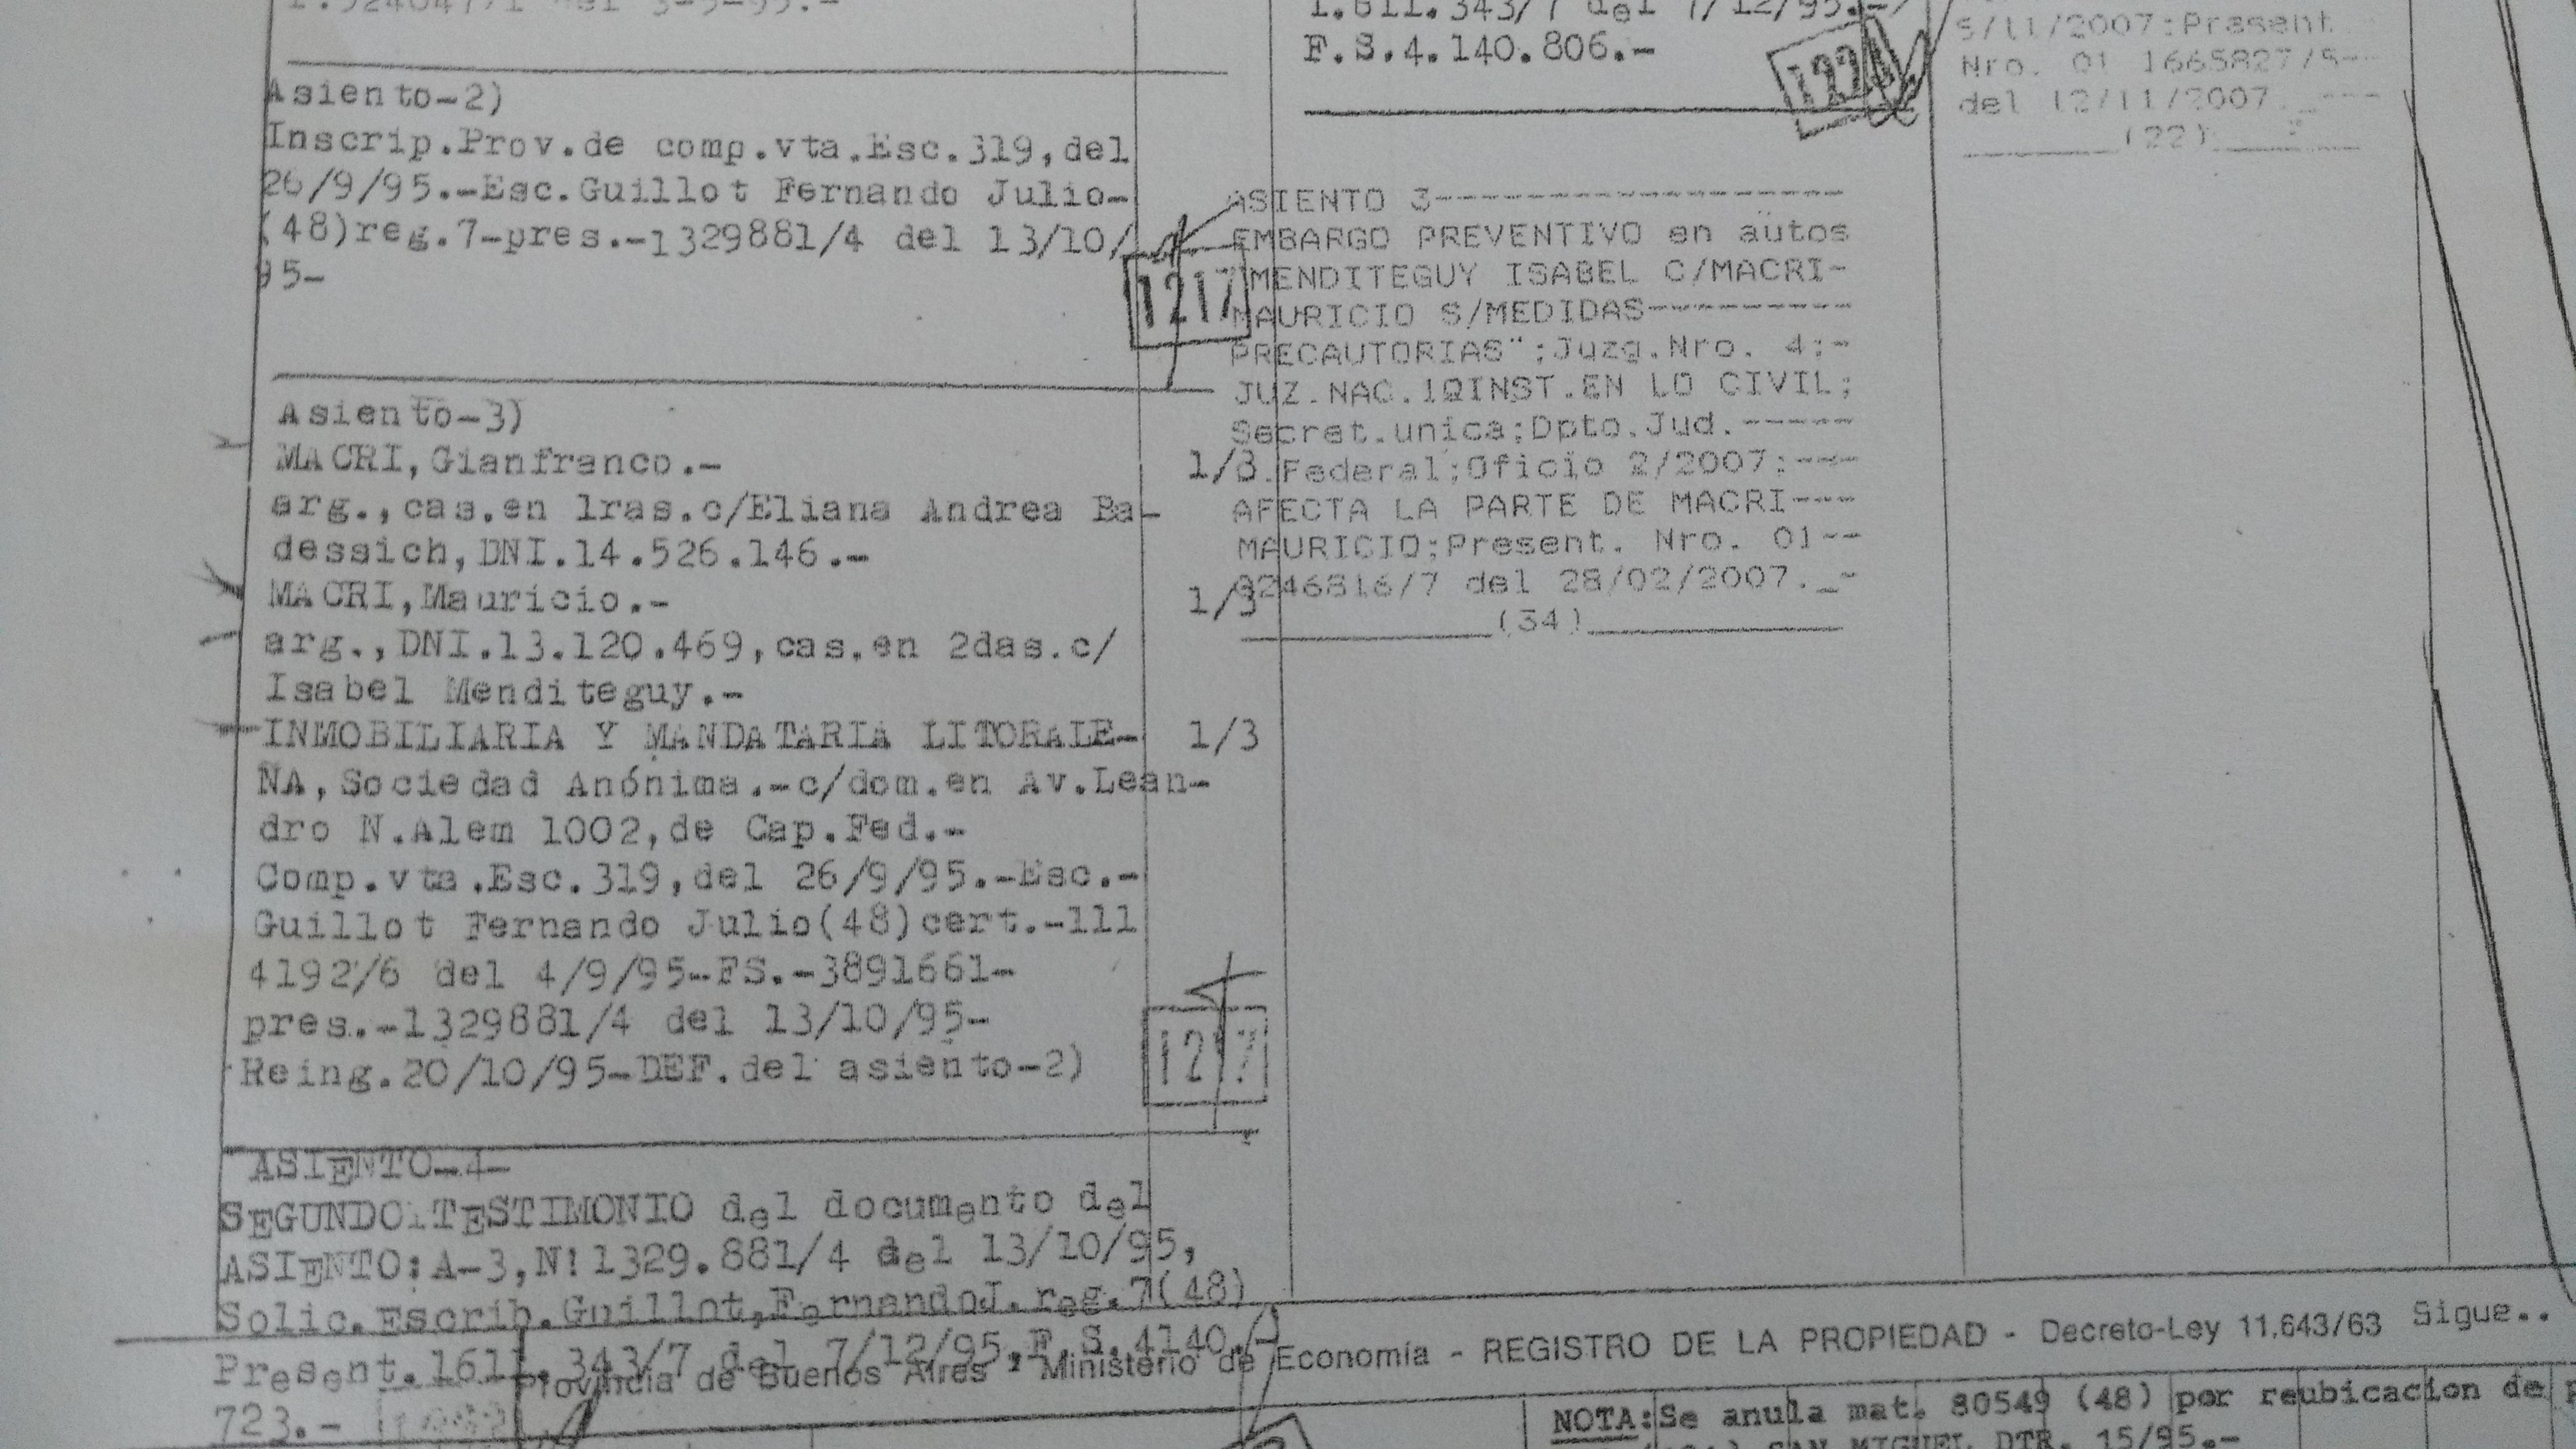 1.5240477/1 del 3-5-95.-
Asiento-2)
Inscrip.Prov.de comp.vta.Esc.319,del
26/9/95.-Esc.Guillot Fernando Julio-
(48)reg.7-pres.-1329881/4 del 13/10/
95-
1217
Asiento-3)
MACRI,Gianfranco.- 1/3
arg.,cas.en 1ras.c/Eliana Andrea Ba-
dessich,DNI.14.526.146.-
MACRI,Mauricio.- 1/3
arg.,DNI.13.120.469,cas.en 2das.c/
Isabel Menditeguy.-
INMOBILIARIA Y MANDATARIA LITORALE- 1/3
ÑA,Sociedad Anónima.-c/dom.en Av.Lean-
dro N.Alem 1002,de Cap.Fed.-
Comp.vta.Esc.319,del 26/9/95.-Esc.-
Guillot Fernando Julio(48)cert.-111
4192/6 del 4/9/95-FS.-3891661-
pres.-1329881/4 del 13/10/95-
Reing.20/10/95-DEF.del asiento-2)
1217
ASIENTO-4-
SEGUNDO TESTIMONIO del documento del
ASIENTO:A-3,N!1329.881/4 del 13/10/95,
Solic.Escrib.Guillot,FernandoJ.reg.7(48)
Present.1611.343/7 del 7/12/95.F.S.4140.
723.-
1.611.343/7 del 7/12/95.-
F.S.4.140.806.-
1224
ASIENTO 3----------------------
EMBARGO PREVENTIVO en autos
"MENDITEGUY ISABEL C/MACRI-
MAURICIO S/MEDIDAS----------
PRECAUTORIAS";Juzg.Nro. 4;-
JUZ.NAC.1QINST.EN LO CIVIL;
Secret.unica;Dpto.Jud.-----
C.Federal;Oficio 2/2007;---
AFECTA LA PARTE DE MACRI---
MAURICIO;Present. Nro. 01--
0246816/7 del 28/02/2007._-
(34)
5/11/2007;Present
Nro. 01 1665827/5--
del 12/11/2007._---
(22)
Provincia de Buenos Aires - Ministerio de Economía - REGISTRO DE LA PROPIEDAD - Decreto-Ley 11.643/63 Sigue..
NOTA:Se anula mat. 80549 (48) por reubicacion de p
SAN MIGUEL DTR. 15/95.-